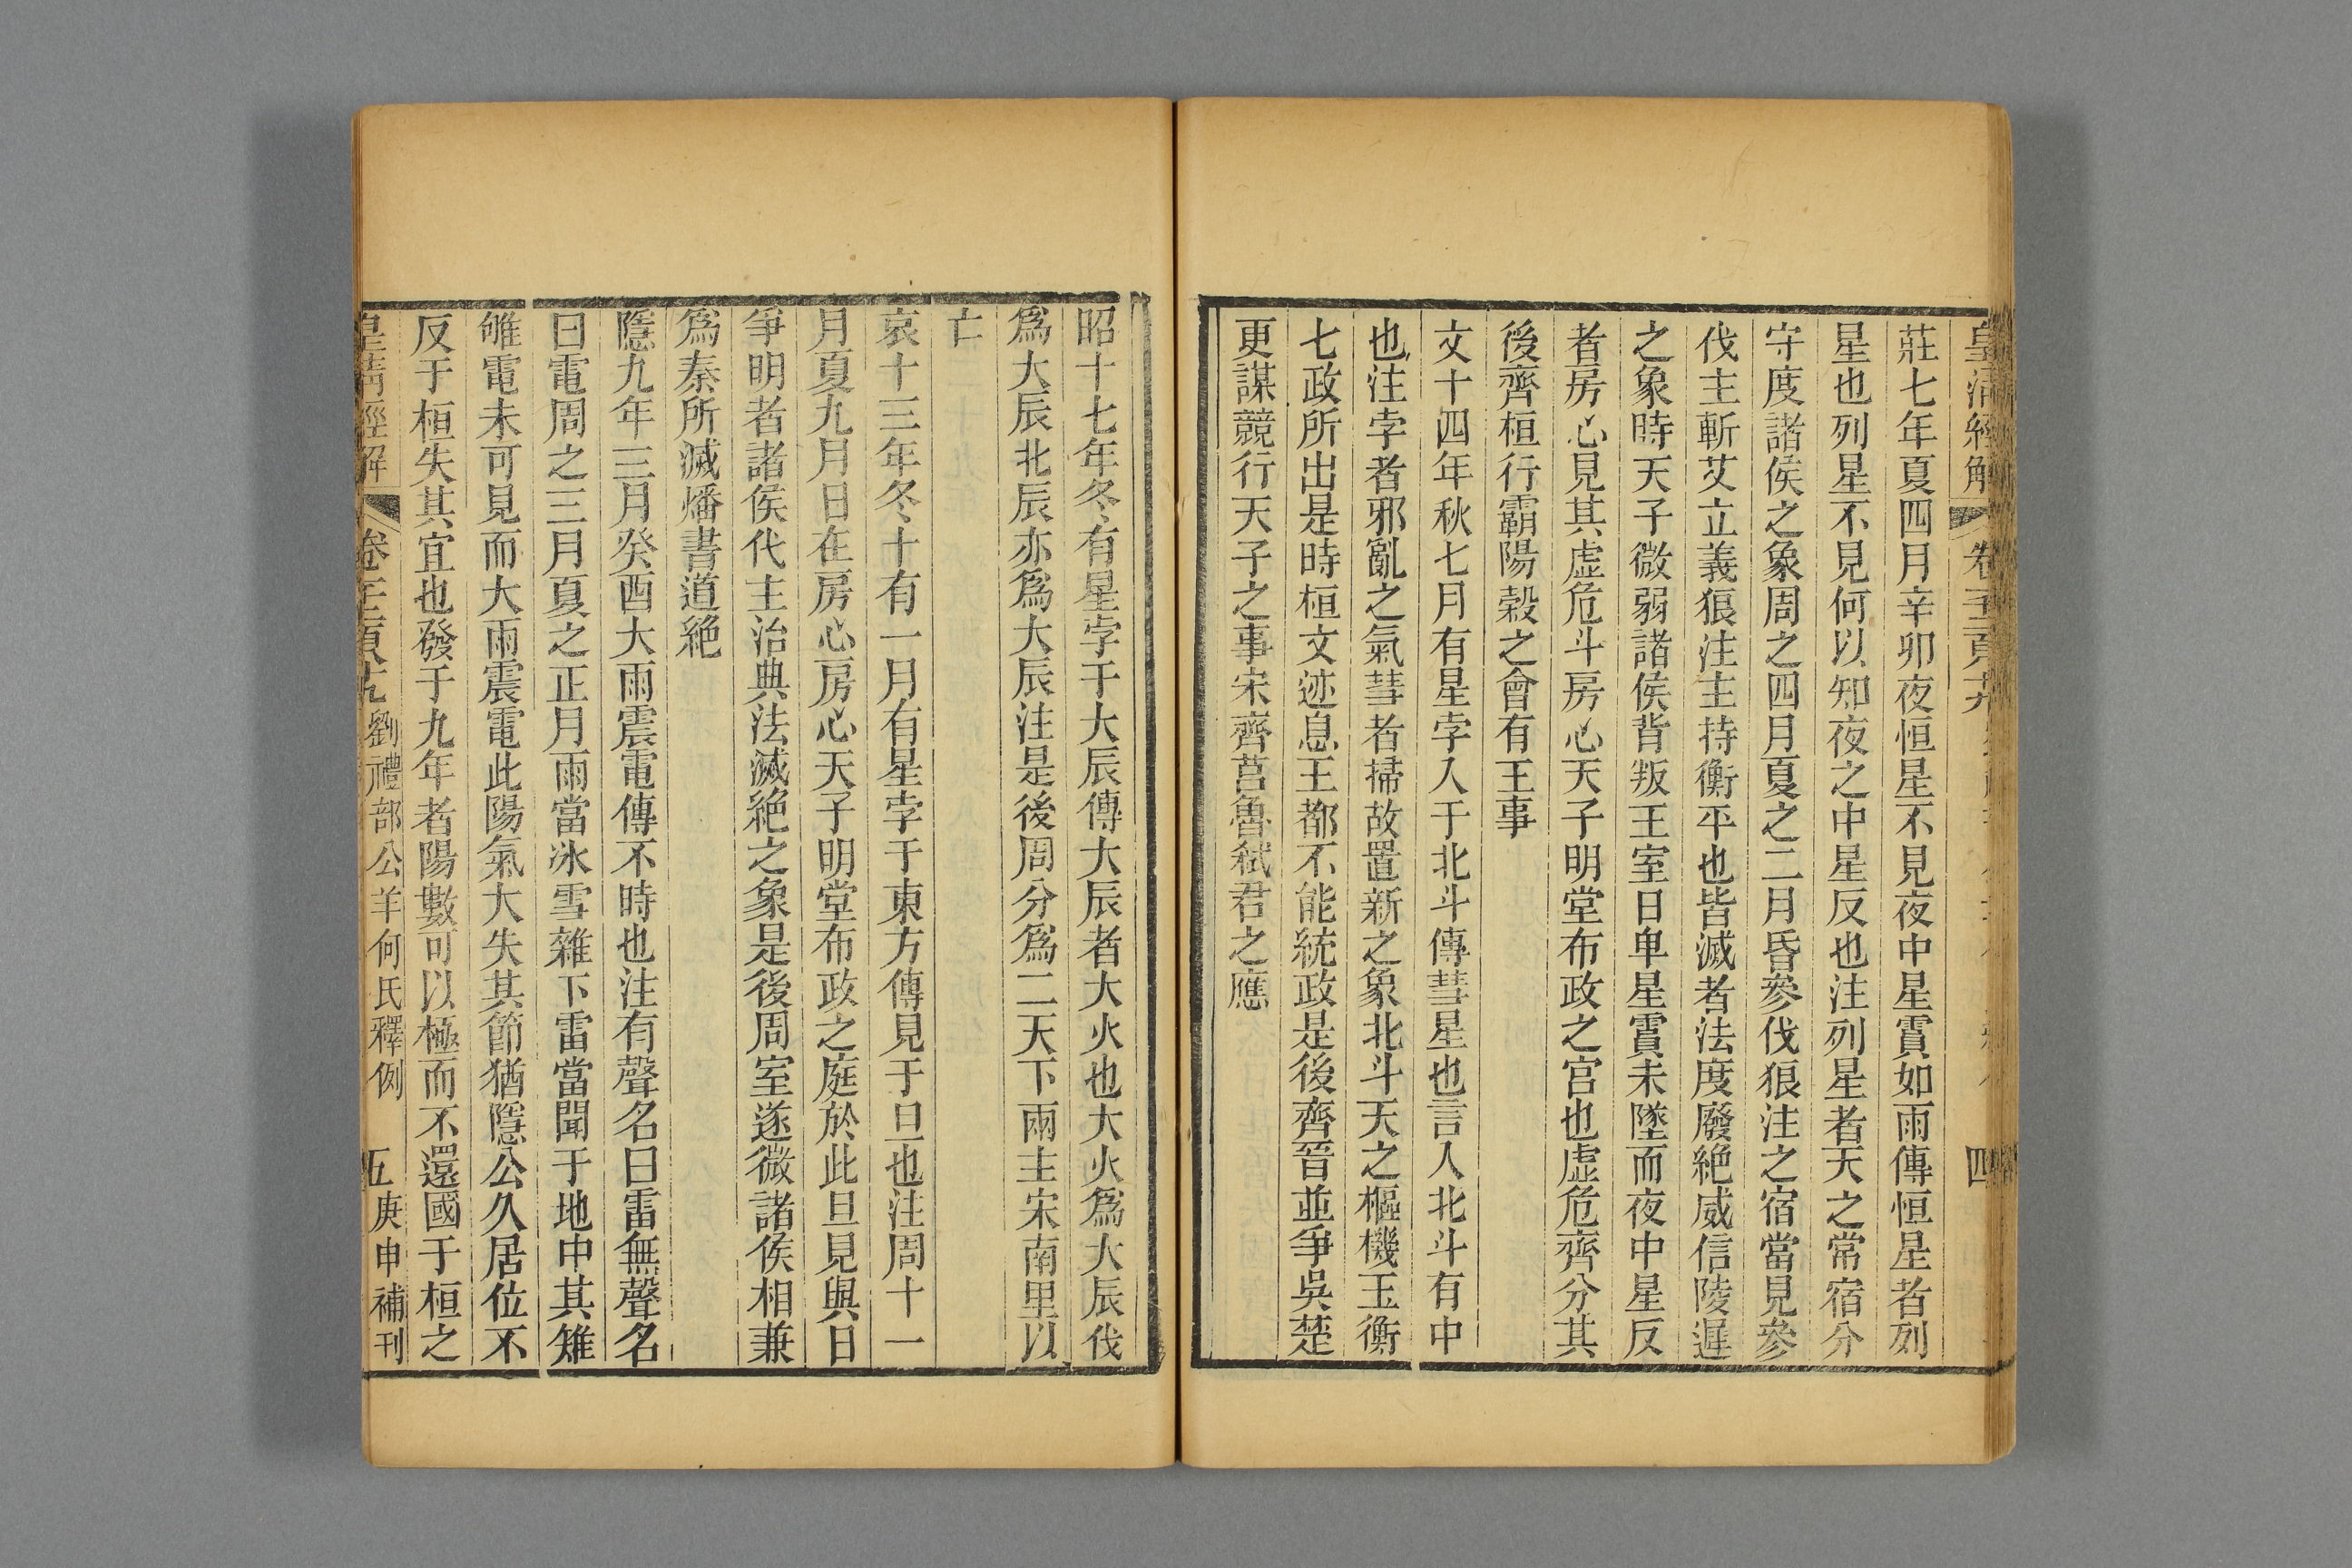 皇清經解 卷 四
莊七年夏四月辛卯夜恒星不見夜中星霣如雨傳恒星者列
星也列星不見何以知夜之中星反也注列星者天之常宿分
守度諸侯之象周之四月夏之二月昏參伐狼注之宿當見參
伐主斬艾立義狼注主持衡平也皆滅者法度廢絶威信陵遲
之象時天子微弱諸侯背叛王室日卑星霣未墜而夜中星反
者房心見其虛危斗房心天子明堂布政之宮也虛危齊分其
後齊桓行霸陽榖之會有王事
文十四年秋七月有星孛入于北斗傳彗星也言入北斗有中
也注孛者邪亂之氣彗者掃故置新之象北斗天之樞機玉衡
七政所出是時桓文迹息王都不能統政是後齊晉並爭吳楚
更謀競行天子之事宋齊莒魯弒君之應
昭十七年冬有星孛于大辰傳大辰者大火也大火爲大辰伐
爲大辰北辰亦爲大辰注是後周分爲二天下兩主宋南里以
亡
哀十三年冬十有一月有星孛于東方傳見于旦也注周十一
月夏九月日在房心房心天子明堂布政之庭於此旦見與日
爭明者諸侯代主治典法滅絶之象是後周室遂微諸侯相兼
爲秦所滅燔書道絶
隱九年三月癸酉大雨震電傳不時也注有聲名曰雷無聲名
曰電周之三月夏之正月雨當冰雪雜下雷當聞于地中其雉
雊電未可見而大雨震電此陽氣大失其節猶隱公久居位不
反于桓失其宜也發于九年者陽數可以極而不還國于桓之
皇清經解 卷 劉禮部公羊何氏釋例 五 庚申補刊